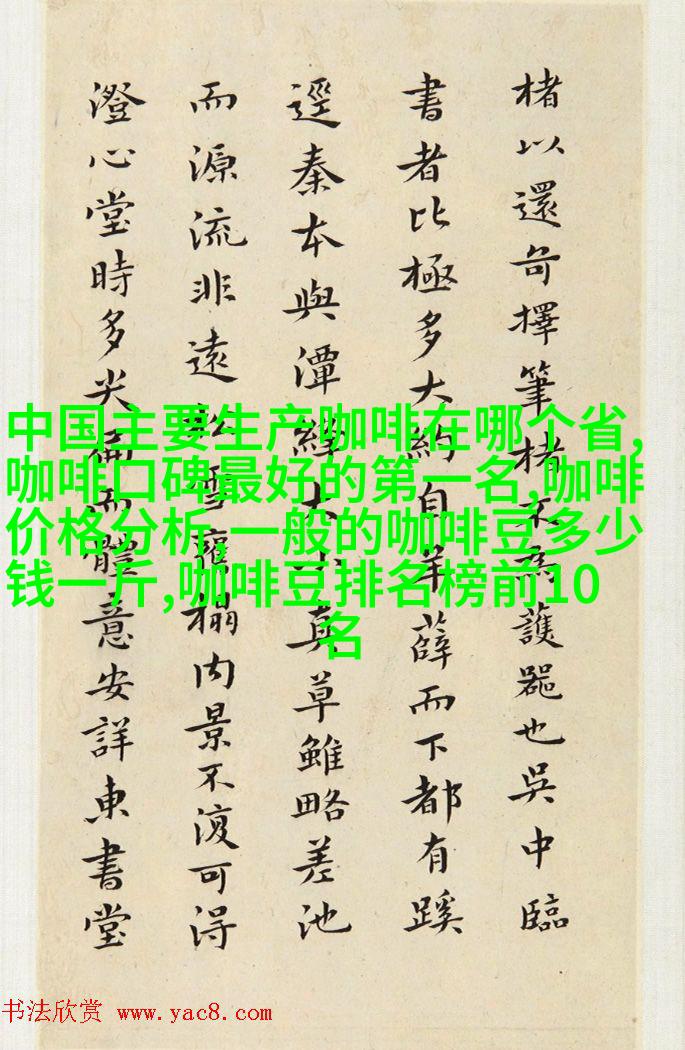 楮以還奇擇筆楮不為護器也吳中臨
書者比極多大約自羊薛而下都有蹊
逕秦本與潭絳大小真草雖略差池
而源流非遠松雪雍榻內景不復可得
澄心堂時多尖扁而體意安詳東書堂
中国主要生产咖啡在哪个省,
咖啡口碑最好的第一名,咖啡
价格分析,一般的咖啡豆多少
钱一斤,咖啡豆排名榜前10
名
书法欣赏 www.yac8.com